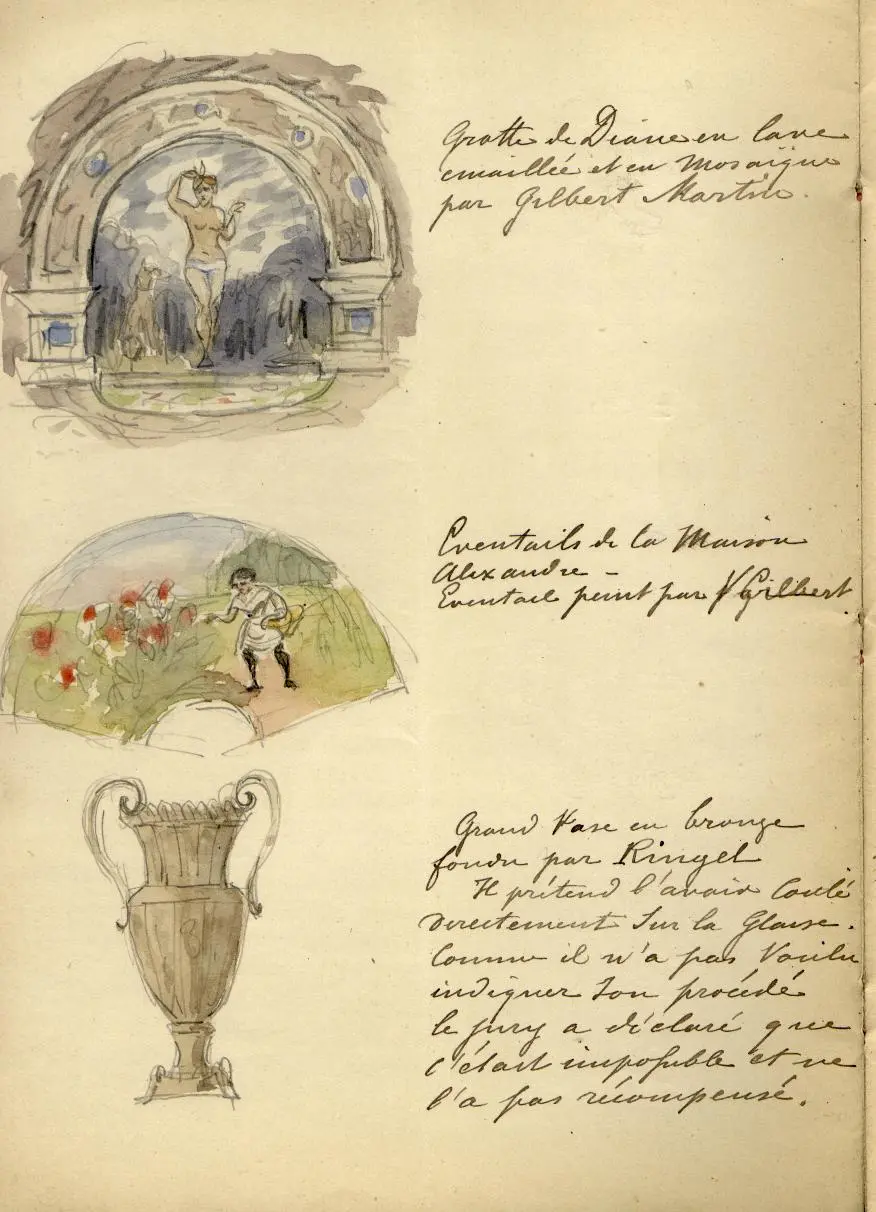 Grotte de Diane en lave
emaillée et en Mosaïque
par Gilbert Martin.
Eventails de la Maison
Alexandre -
Eventail peint par V Gilbert
Grand Vase en bronze
fondu par Ringel
Il prétend l'avoir Coulé
Directement Sur la Glaise.
Comme il n'a pas Voulu
indiquer Son procédé
le jury a déclaré que
c'était impossible et ne
l'a pas récompensé.